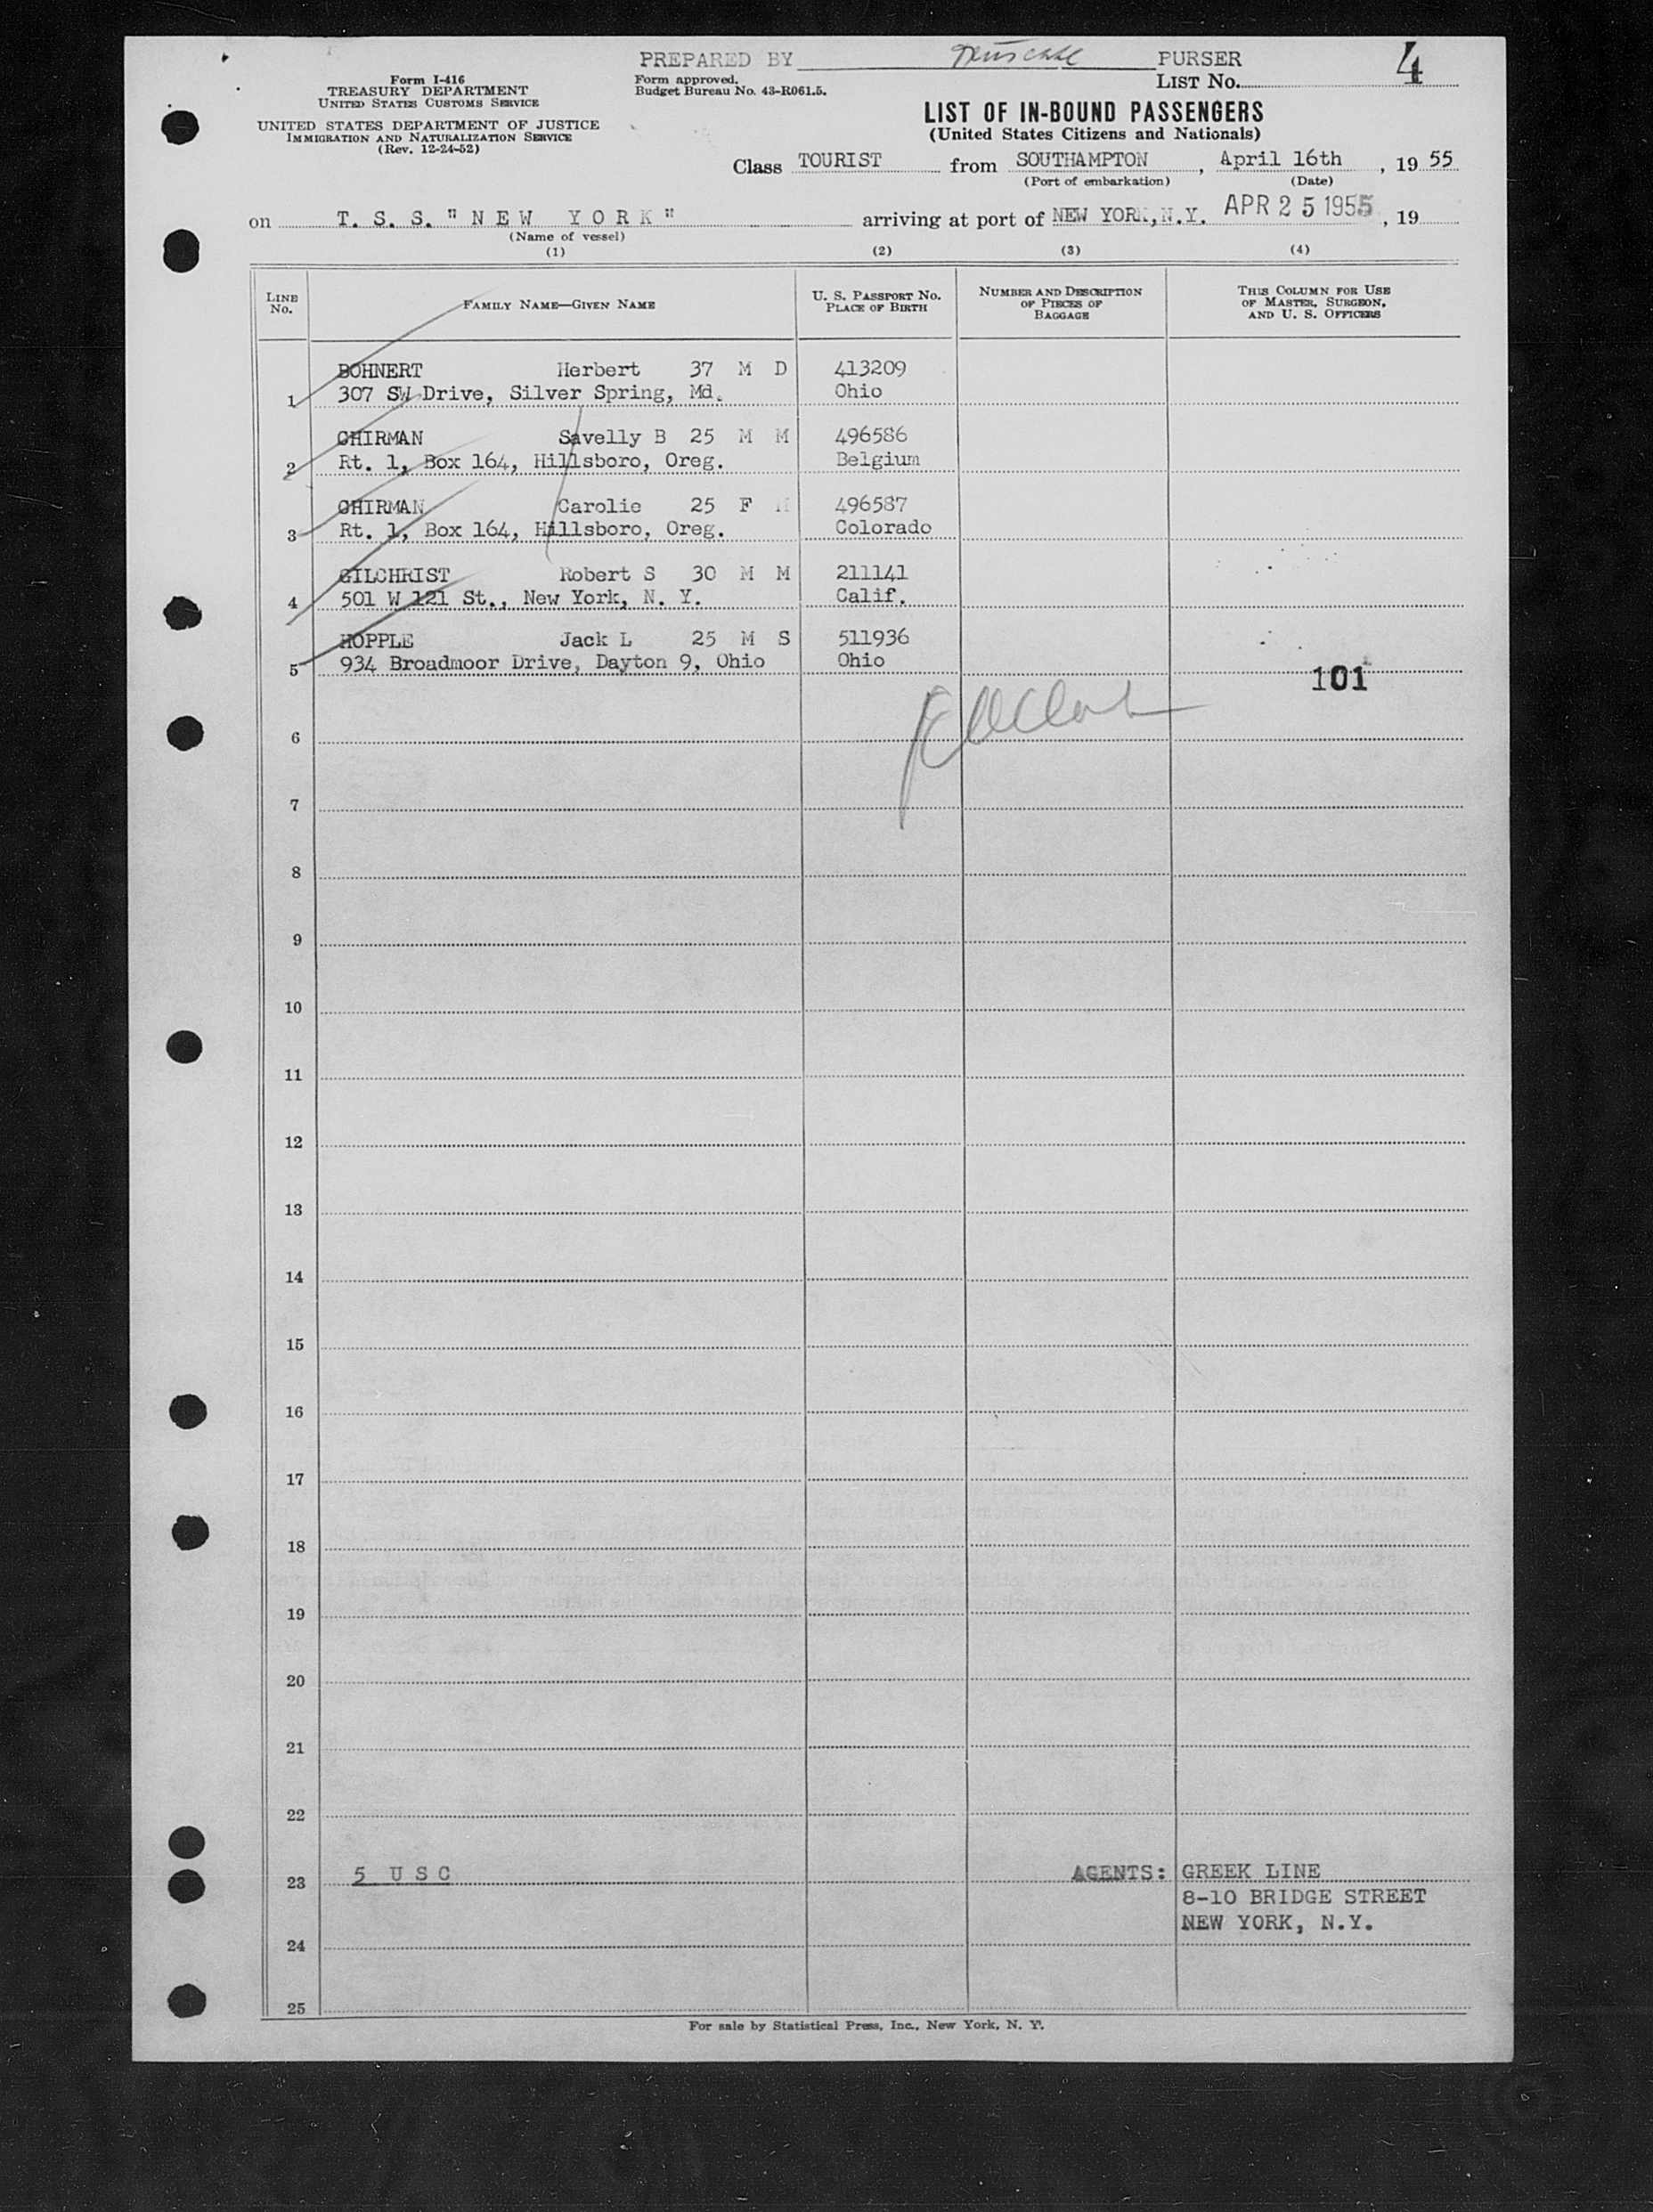 PREPARED BY PURSER
4
Form I-416
TREASURY DEPARTMENT
UNITED STATES CUSTOMS SERVICE
UNITED STATES DEPARTMENT OF JUSTICE
IMMIGRATION AND NATURALIZATION SERVICE
(Rev. 12-24-52)
Form approved.
Budget Bureau No. 43-R061.5.
LIST No.
LIST OF IN-BOUND PASSENGERS
(United States Citizens and Nationals)
Class TOURIST from SOUTHAMPTON, April 16th, 19 55
(Port of embarkation) (Date)
on T. S. S. "NEW YORK" arriving at port of NEW YORK, N.Y. APR 25 1955, 19
(Name of vessel)
(1) (2) (3) (4)
LINE No. FAMILY NAME—GIVEN NAME U. S. PASSPORT No. PLACE OF BIRTH NUMBER AND DESCRIPTION OF PIECES OF BAGGAGE THIS COLUMN FOR USE OF MASTER, SURGEON, AND U. S. OFFICERS
BOHNERT Herbert 37 M D 413209
1 307 SW Drive, Silver Spring, Md. Ohio
GHIRMAN Savelly B 25 M M 496586
2 Rt. 1, Box 164, Hillsboro, Oreg. Belgium
GHIRMAN Carolie 25 F M 496587
3 Rt. 1, Box 164, Hillsboro, Oreg. Colorado
GILCHRIST Robert S 30 M M 211141
4 501 W 121 St., New York, N. Y. Calif.
HOPPLE Jack L 25 M S 511936
5 934 Broadmoor Drive, Dayton 9, Ohio Ohio
101
6
7
8
9
10
11
12
13
14
15
16
17
18
19
20
21
22
23 5 U S C AGENTS: GREEK LINE
8-10 BRIDGE STREET
NEW YORK, N.Y.
24
25
For sale by Statistical Press, Inc., New York, N. Y.